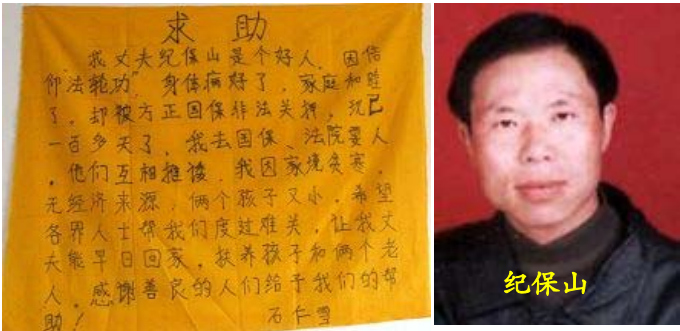 求助
我丈夫纪保山是个好人。因信
仰"法轮功"身体病好了，家庭和睦
了，却被方正国保非法关押，现已
一百多天了，我去国保、法院要人
，他们互相推诿。我因家境贫寒，
无经济来源，两个孩子又小，希望
各界人士帮我们度过难关，让我丈
夫能早日回家，扶养孩子和两个老
人。感谢善良的人们给予我们的帮
助！
石仁雪
纪保山